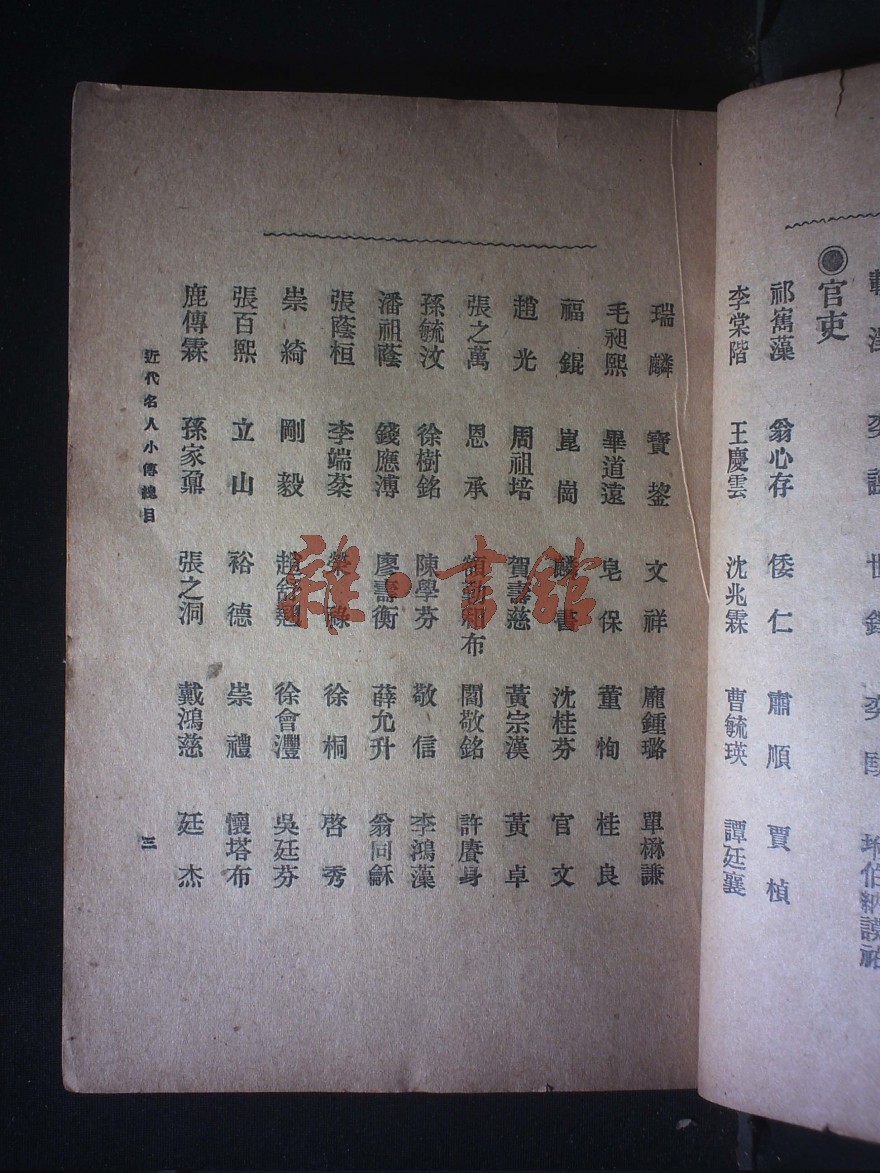 載澤 奕譞 世鐸 奕劻 那伯納謨祜
●官吏
祁寯藻 翁心存 倭仁 肅順 賈楨
李棠階 王慶雲 沈兆霖 曹毓瑛 譚廷襄
瑞麟 寶鋆 文祥 龐鍾璐 單懋謙
毛昶熙 畢道遠 皂保 董恂 桂良
福錕 崑岡 麟書 沈桂芬 官文
趙光 周祖培 賀壽慈 黃宗漢 黃卓
張之萬 恩承 額勒和布 閻敬銘 許賡身
孫毓汶 徐樹銘 陳學芬 敬信 李鴻藻
潘祖蔭 錢應溥 廖壽衡 薛允升 翁同龢
張蔭桓 李端棻 榮祿 徐桐 啓秀
崇綺 剛毅 趙舒翹 徐會灃 吳廷芬
張百熙 立山 裕德 崇禮 懷塔布
鹿傳霖 孫家鼐 張之洞 戴鴻慈 廷杰
近代名人小傳總目
三
雜·書館